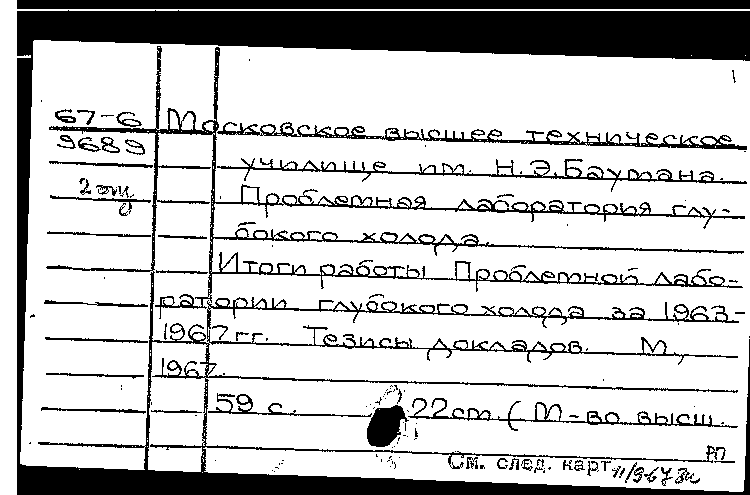 1
67-6 Московское высшее техническое
9689 училище им. Н.Э.Баумана.
2 эк Проблемная лаборатория глу-
бокого холода.
Итоги работы Проблемной лабо-
ратории глубокого холода за 1963-
1967 гг. Тезисы докладов. М.,
1967.
59 с. 22 см. (М-во высш.
РП
См. след. карт.